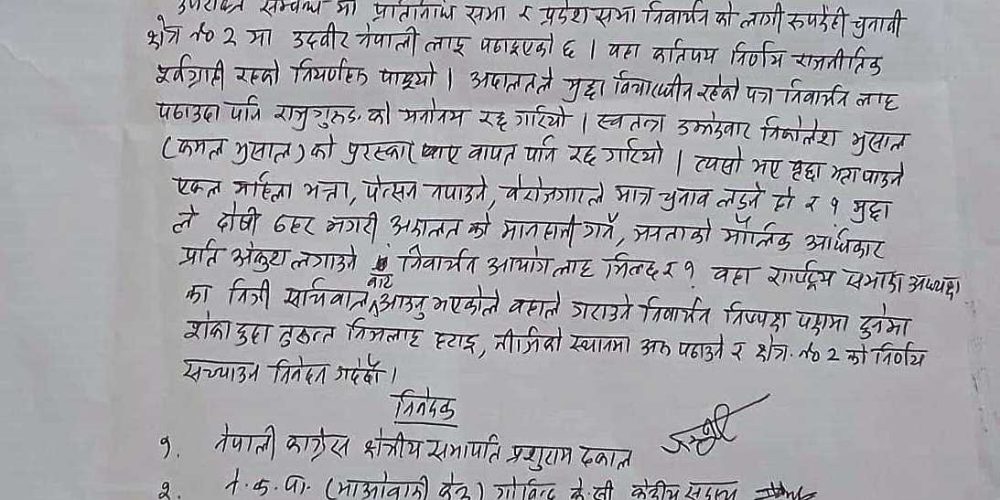 उपरोक्त सम्बन्ध मा प्रतिनिधि सभा र प्रदेश सभा निवार्चन को लागी रुपन्देही चुनावी
क्षेत्र नं० 2 मा उदवीर नेपाली लाइ पठाइएको छ । वहा कतिपय निर्णय राजनीतिक
पूर्वाग्राही रहेको निर्णयहरु पाइयो । अदालतले मुद्दा विचाराधीन रहेको पत्र निवार्चन लाइ
पठाउदा पनि राजु गुरुङ को मनोनय रद्द गरियो । स्वतन्त्र उम्मेद्वार निकोलेश भुसाल
(कमल भुसाल) को पुरस्कार पाए वापत पनि रद्द गरियो । त्यसो भए वृद्धा भत्ता पाउने
एकल महिला भत्ता, पेन्सन नपाउने, वेरोजगारले मात्र चुनाव लड्ने हो र ? मुद्दा
ले दोषी ठहर नगरी अदालत को मानहानी गर्ने, जनताको मौलिक अधिकार
प्रति अंकुश लगाउने निवार्चन आयोग लाइ मिल्दछ र ? वहा राष्ट्रिय सभाका अध्यक्ष
का निजी सचिवालय बाट आउनु भएकोले वहाले गराउने निवार्चन निष्पक्ष पक्षमा हुनेमा
शंका हुदा तुरुन्त निजलाइ हटाइ, नीजको स्थानमा अरु पठाउने र क्षेत्र. नं० 2 को निर्णय
सच्याउन निवेदन गर्दछौं ।
निवेदक
१. नेपाली काग्रेस क्षेत्रीय सभापति प्रशुराम ढकाल
२. ने.क.पा. (माओवादी केन्द्र) गोविन्द के.सी केन्द्रीय सदस्य